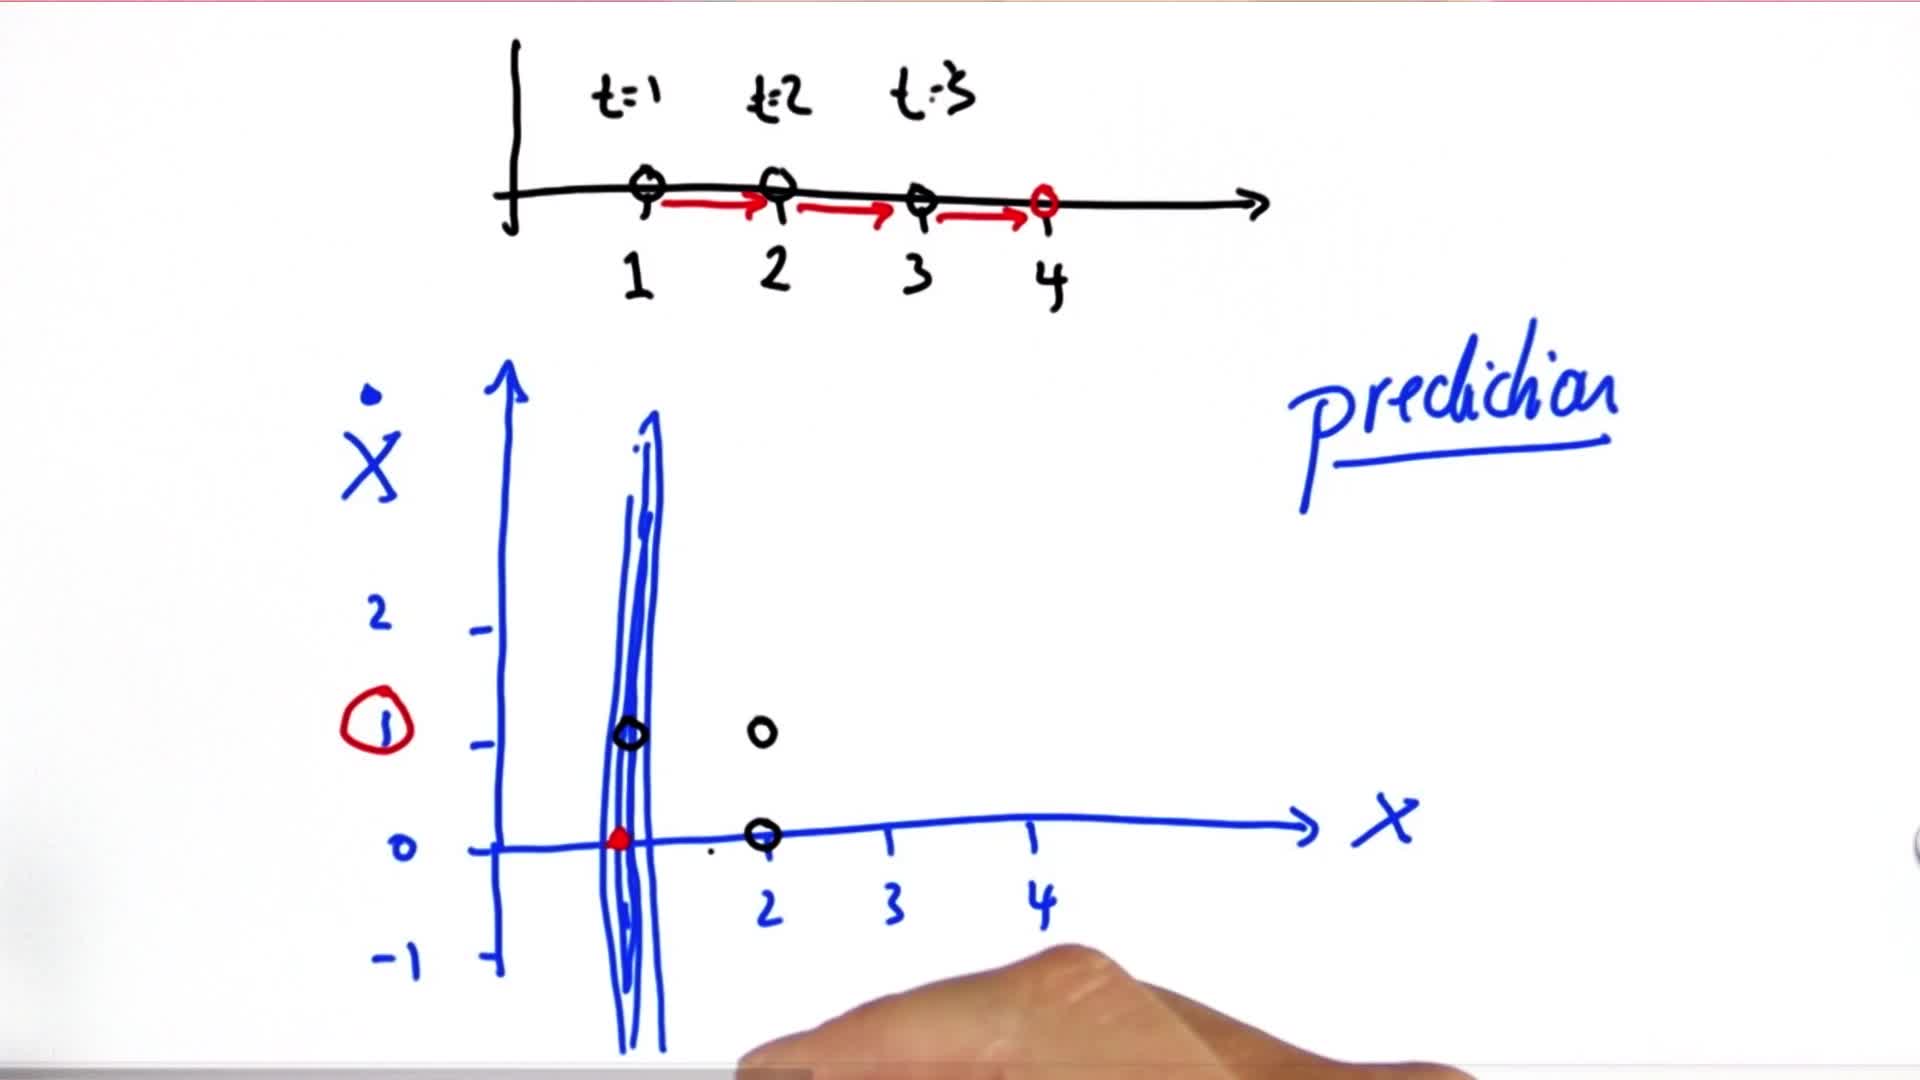 t=1 t=2 t=3
1 2 3 4
prediction
Ẋ
2
1
0
X
2 3 4
-1